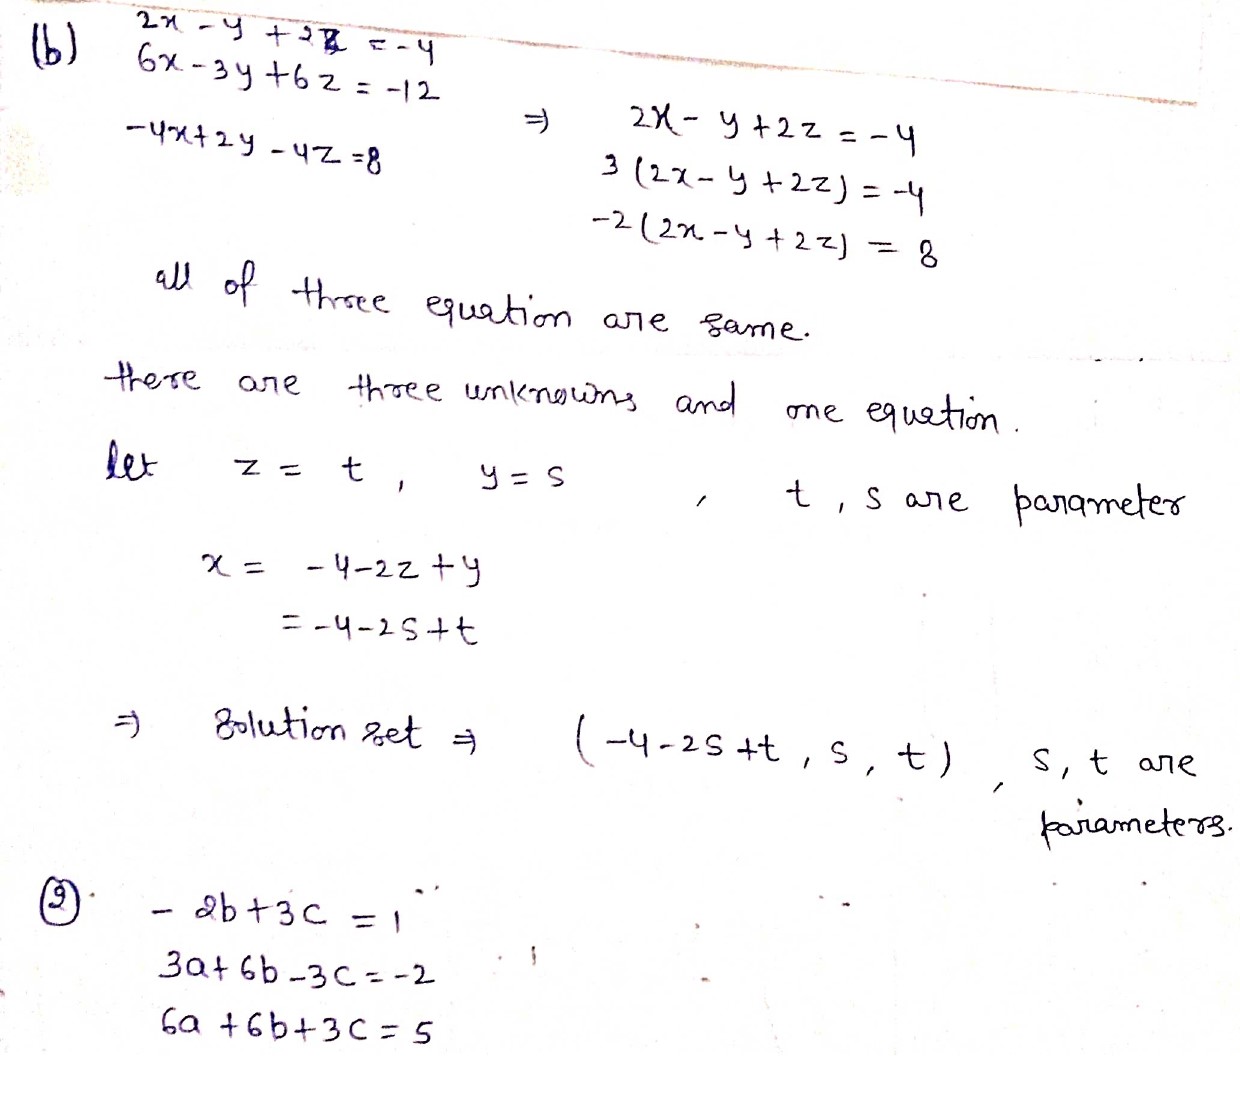 (b) 2x - y + 2z = -4
6x - 3y + 6z = -12
-4x + 2y - 4z = 8
⇒ 2x - y + 2z = -4
3 (2x - y + 2z) = -4
-2 (2x - y + 2z) = 8
all of three equation are same.
there are three unknowns and one equation.
let z = t , y = s , t , s are parameter
x = -4 - 2z + y
= -4 - 2s + t
⇒ Solution set ⇒ (-4 - 2s + t , s , t) , s, t are
parameters.
(2). - 2b + 3c = 1
3a + 6b - 3c = -2
6a + 6b + 3c = 5